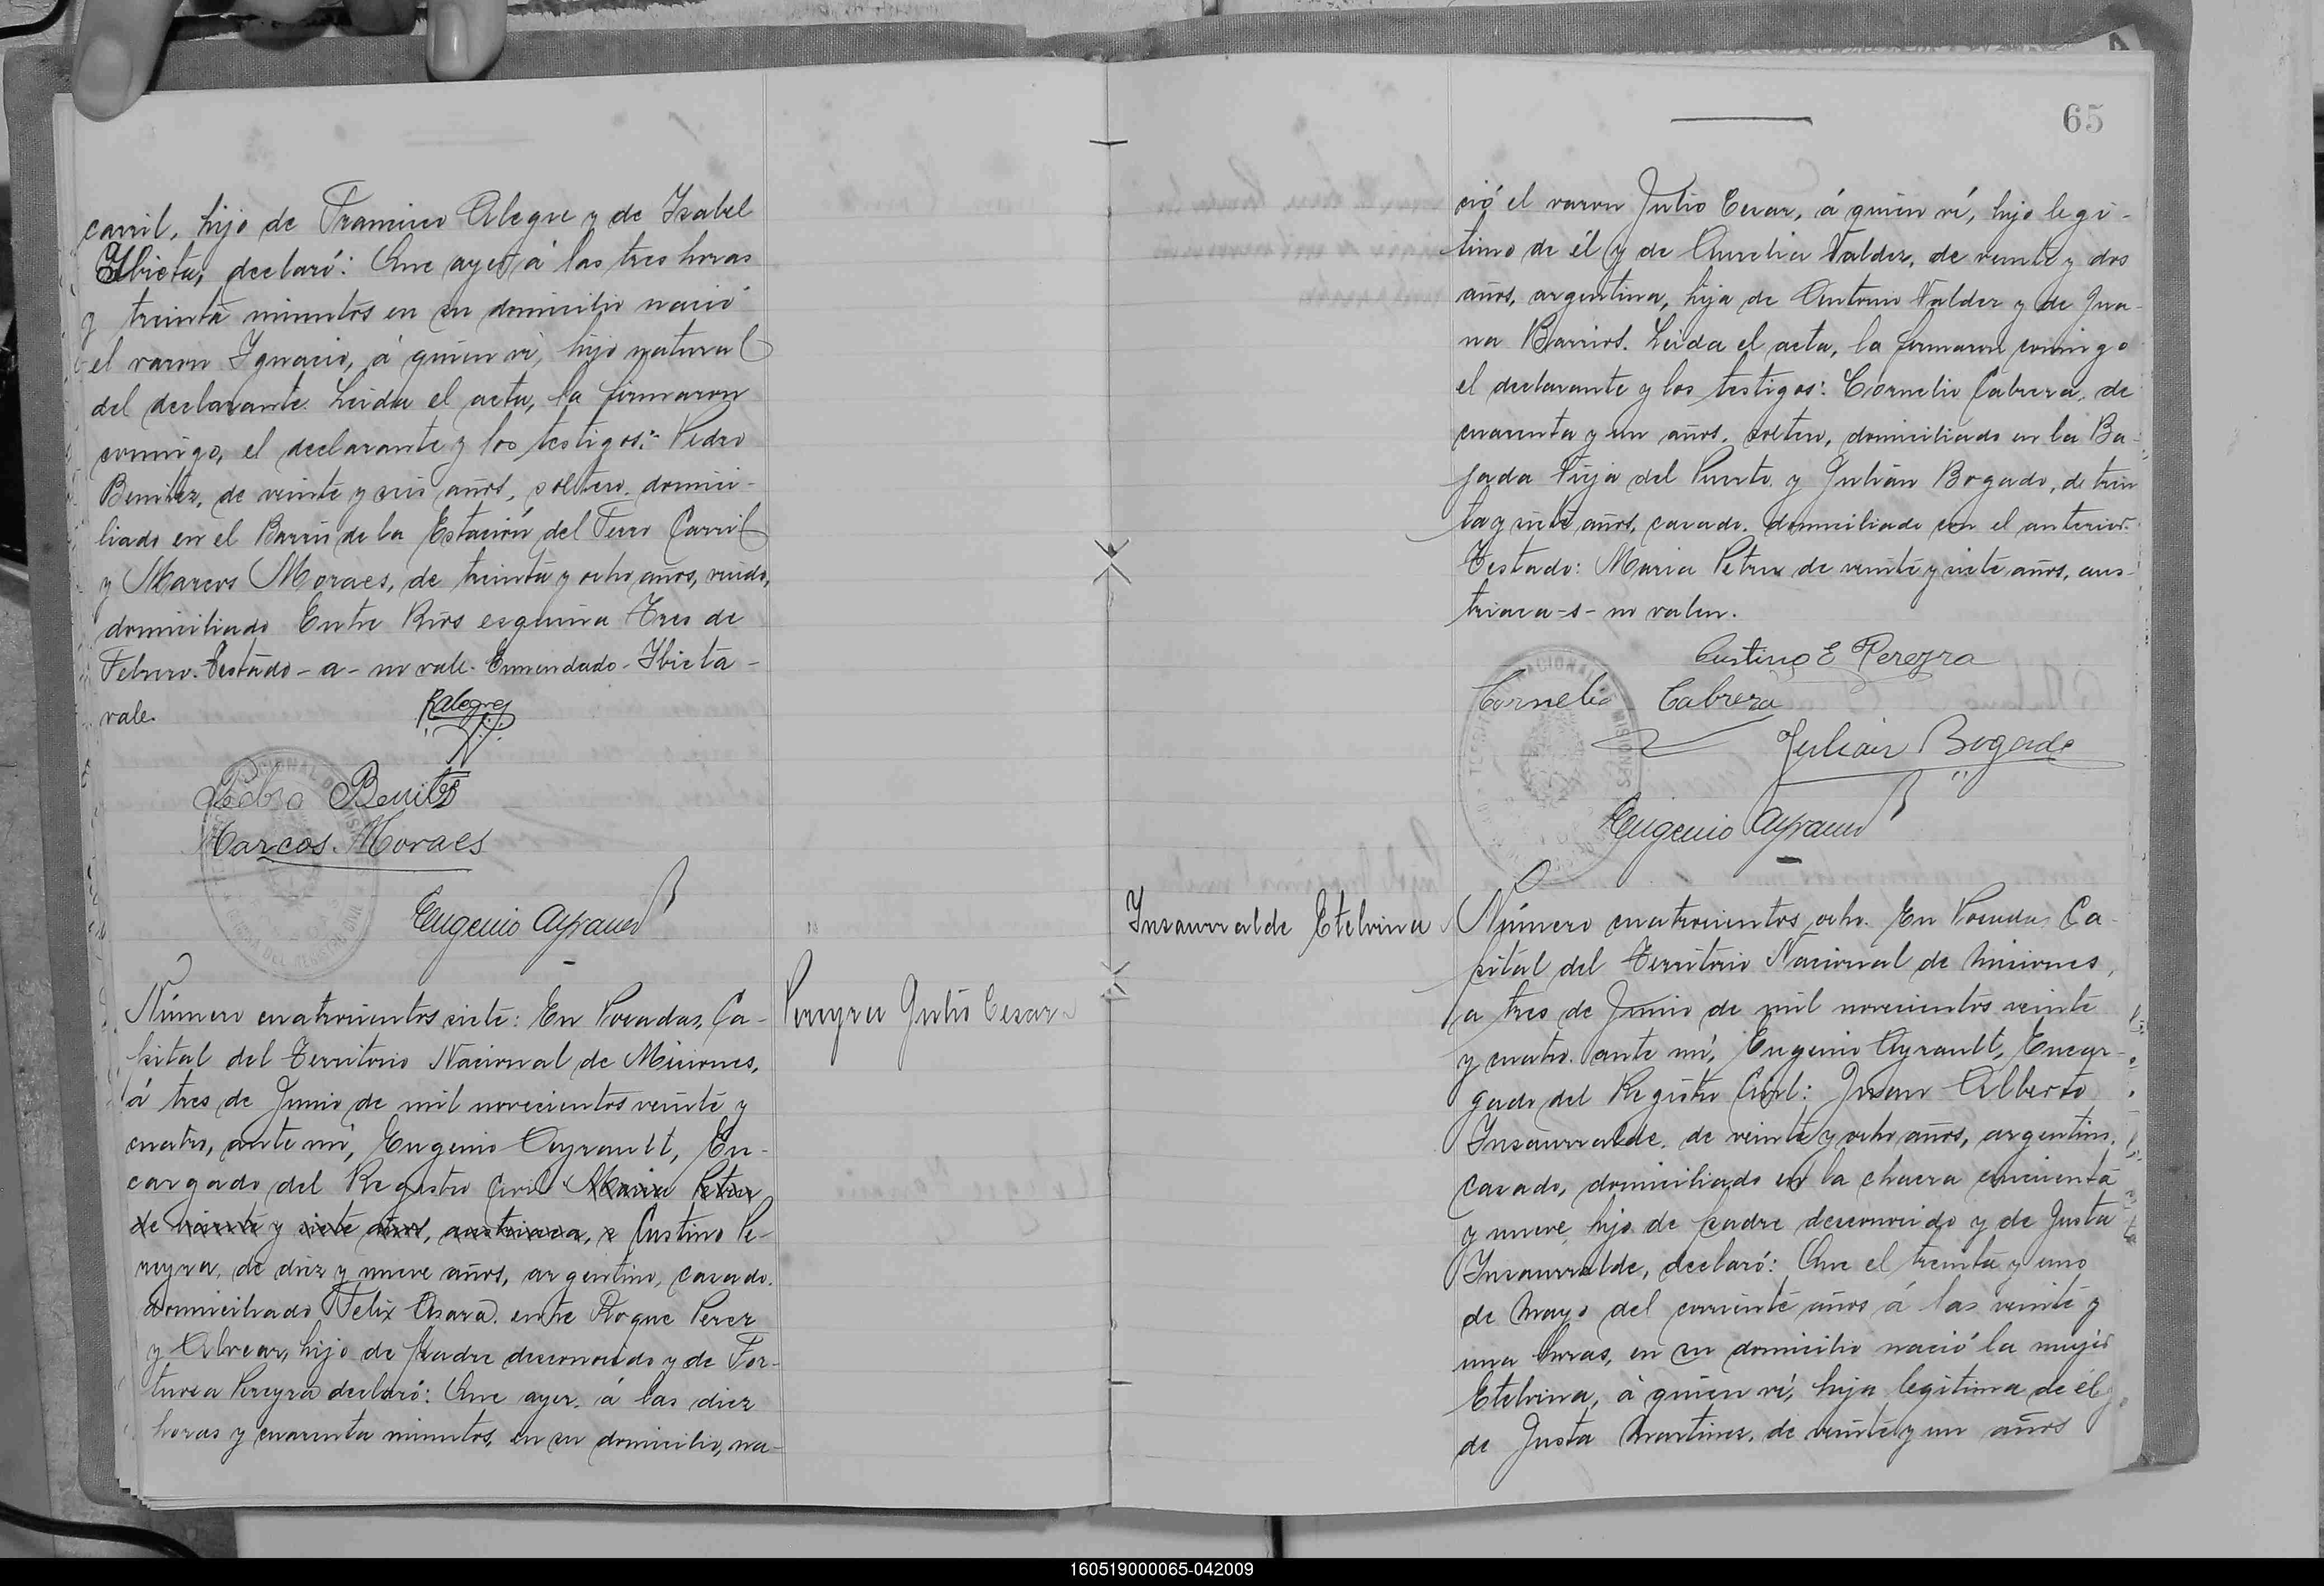 carril, hijo de Francisco Alegre y de Isabel
Ibieta, declaró: Que ayer á las tres horas
y treinta minutos en su domicilio nació
el varon Ygnacio, á quien ví, hijo natural
del declarante. Leida el acta, la firmaron
conmigo, el declarante y los testigos: Pedro
Benitez, de veinte y seis años, soltero, domici-
liado en el Barrio de la Estación del Ferro Carril
y Marcos Moraes, de treinta y ocho años, viudo,
domiciliado Entre Rios esquina Tres de
Febrero. Testado - a - no vale. Enmendado - Ybieta -
vale.
RAlegre
Pedro Benites
Marcos Moraes
Eugenio Ayrault
Número cuatrocientos siete: En Posadas, Ca-
pital del Territorio Nacional de Misiones,
á tres de Junio de mil novecientos veinte y
cuatro, ante mí, Eugenio Ayrault, En-
cargado del Registro Civil: Maria Petrux
de veinte y siete años, austriaca, s Custino Pe-
reyra, de diez y nueve años, argentino, casado,
domiciliado Felix Asara entre Roque Perez
y Alvear, hijo de padre desconocido y de For-
tunosa Pereyra declaró: Que ayer, á las diez
horas y cuarenta minutos, en su domicilio, na-
Pereyra Julio Cesar
65
ció el varon Julio Cesar, á quien ví, hijo legi-
timo de él y de Aurelia Valdez, de veinte y dos
años, argentina, hija de Antonio Valdez y de Jua-
na Barrios. Leida el acta, la firmaron conmigo
el declarante y los testigos: Cornelio Cabrera, de
cuarenta y un años, soltero, domiciliado en la Ba-
jada Vieja del Puerto y Julián Bogado, de trein
ta y siete años, casado, domiciliado con el anterior.
Testado: Maria Petrux de veinte y siete años, aus-
triaca - s - no valen.
Custino E Pereyra
Cornelio Cabrera
Julian Bogado
Eugenio Ayrault
Insaurralde Etelvina
Número cuatrocientos ocho. En Posadas Ca-
pital del Territorio Nacional de Misiones,
a tres de Junio de mil novecientos veinte
y cuatro, ante mí, Eugenio Ayrault, Encar-
gado del Registro Civil: Juan Alberto
Insaurralde, de veinte y ocho años, argentino,
casado, domiciliado en la chacra cincuenta
y nueve, hijo de padre desconocido y de Justa
Insaurralde, declaró: Que el treinta y uno
de Mayo del corriente años á las veinte y
una horas, en su domicilio nació la mujer
Etelvina, á quien ví, hija legitima de él y
de Justa Martinez, de veinte y un años
160519000065-042009